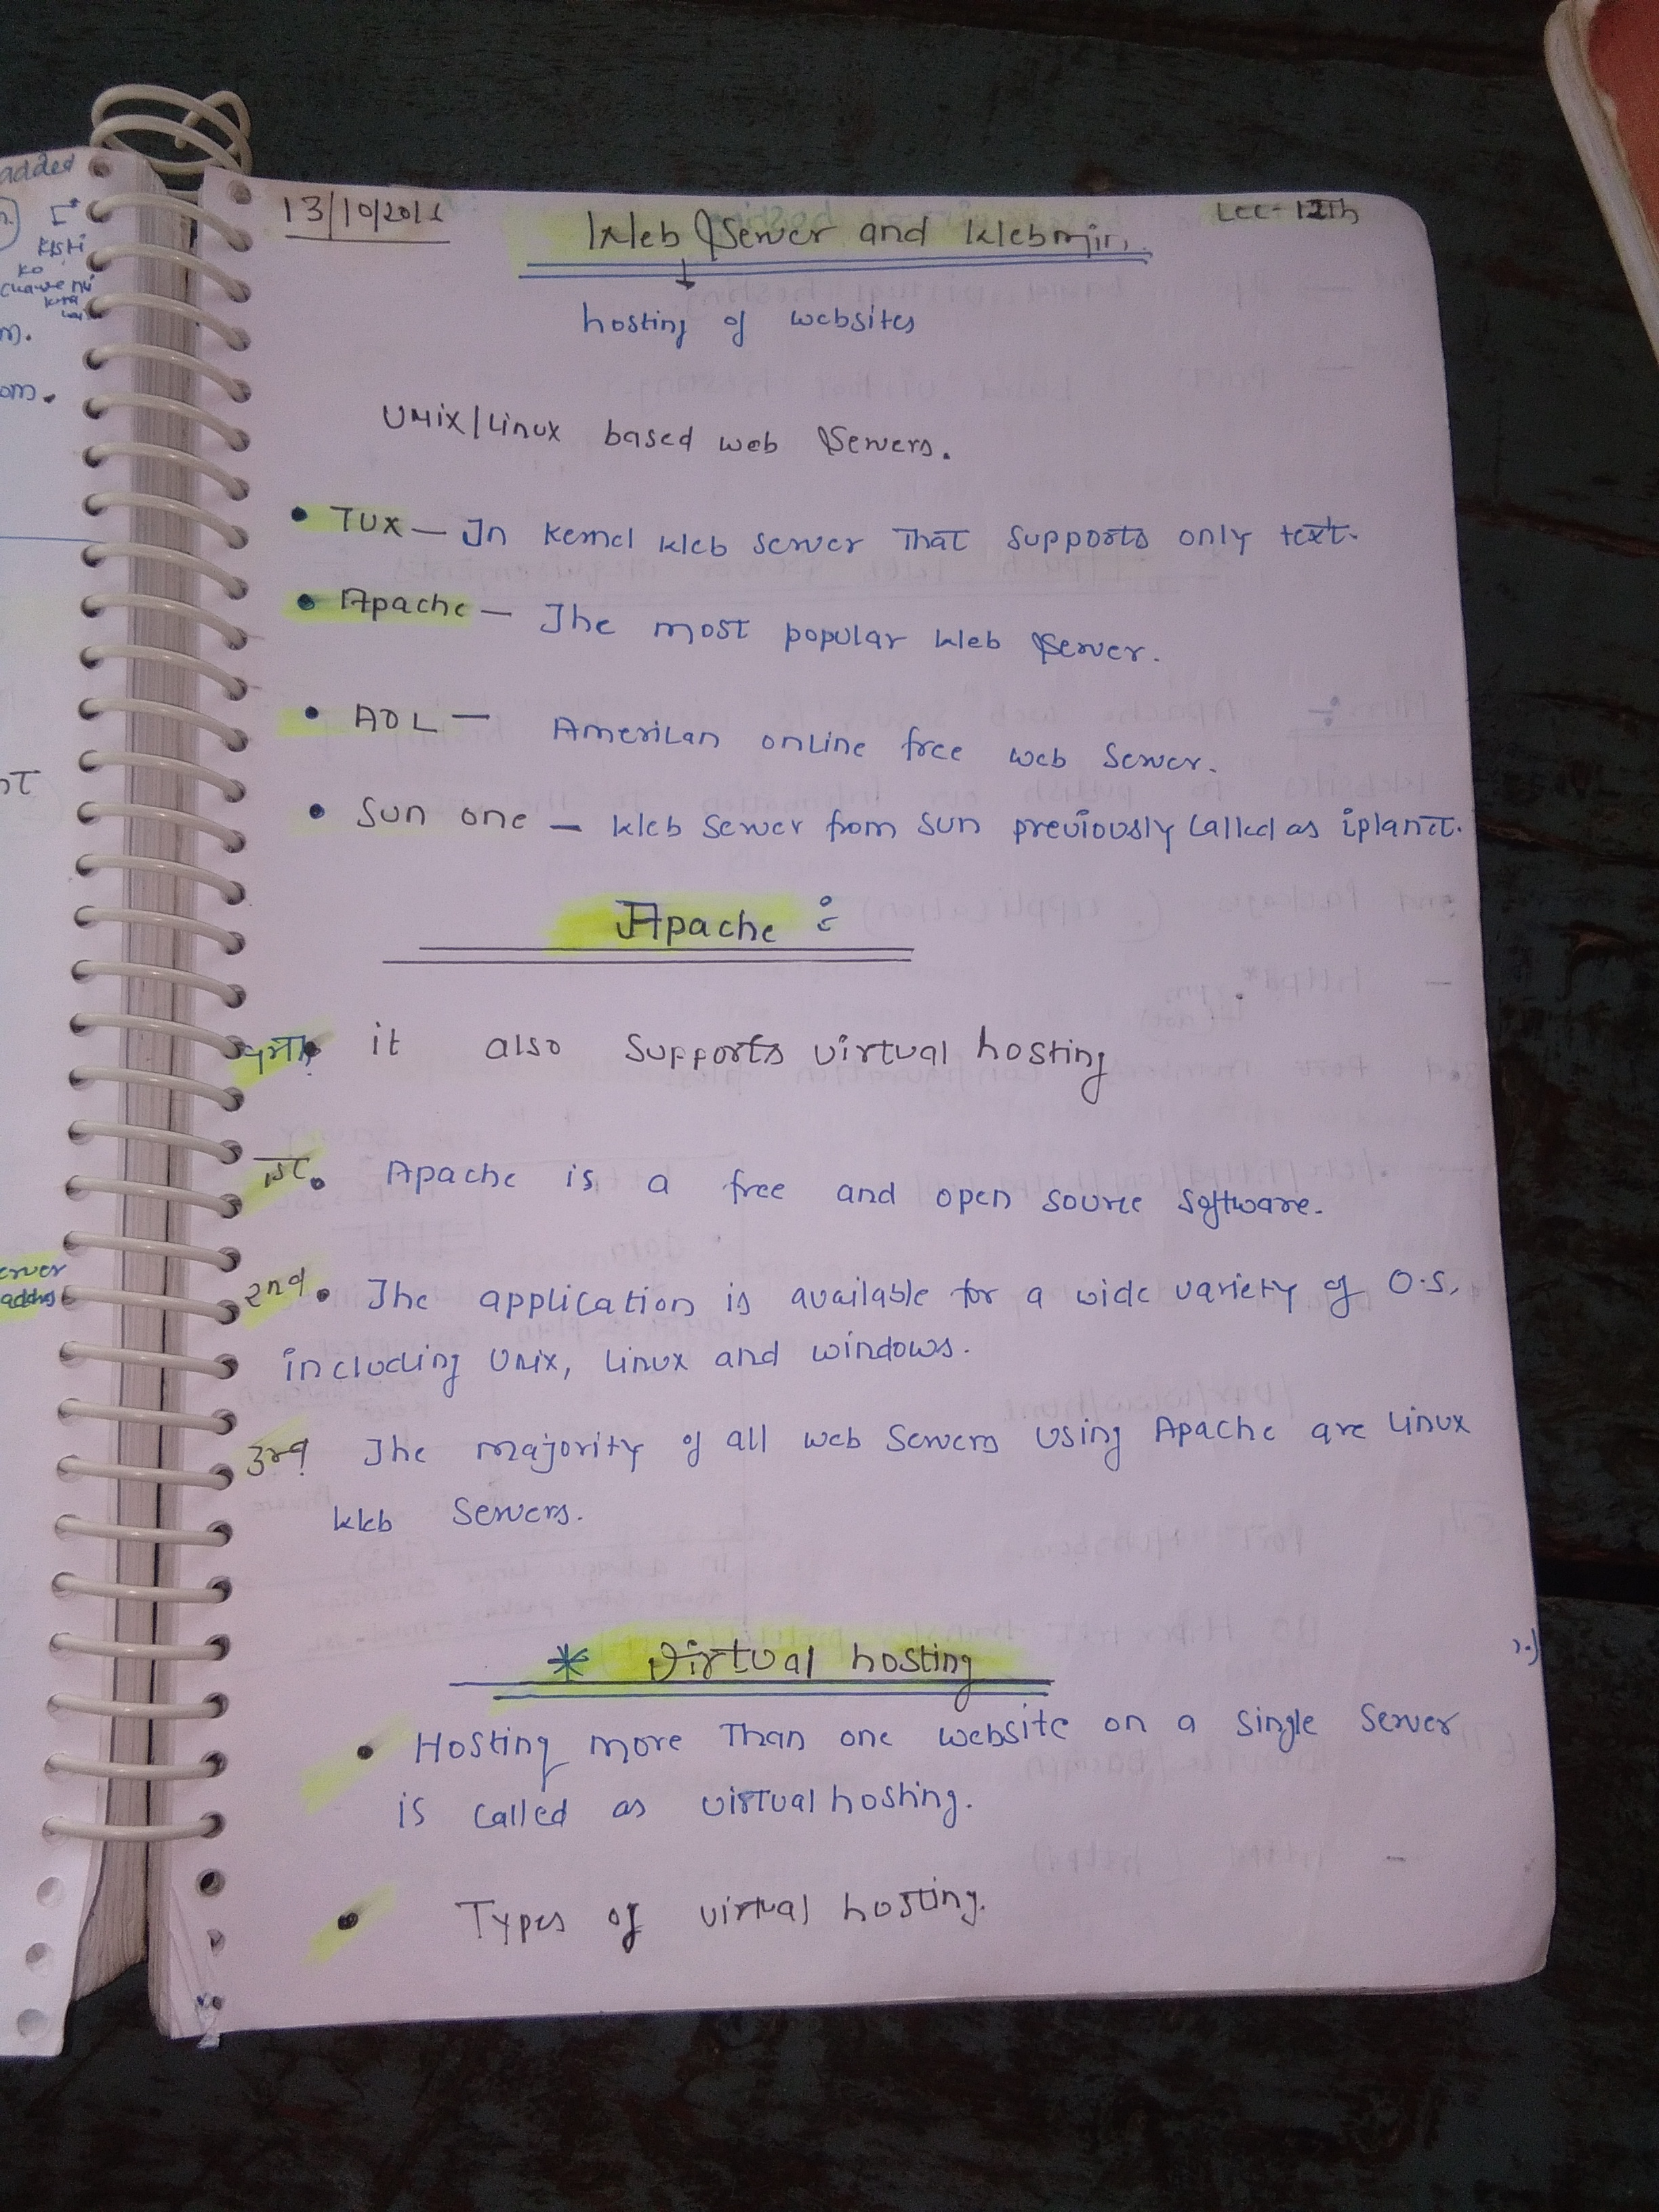 13/10/2011
Lec-12Th
Web Server and Webmin.
hosting of websites
Unix/Linux based web Servers.
• TUX — In Kernel Web server That supports only text.
• Apache — The most popular Web Server.
• AOL — American online free web Server.
• Sun one — Web Server from Sun previously Called as iplanet.
Apache :
4rth • it also supports virtual hosting
1st • Apache is a free and open source software.
2nd • The application is available for a wide variety of O.S,
including Unix, Linux and windows.
3rd The majority of all web Servers using Apache are Linux
Web Servers.
* Virtual hosting
• Hosting more Than one website on a single Server
is called as virtual hosting.
• Types of virtual hosting.
added
Kisti
ko
m.
om.
erver
addrs